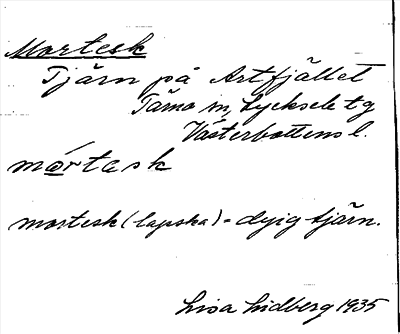 Mortesk
Tjärn på Artfjället
Tärna sn, Lycksele tg
Västerbottens l.
mórtask
mortesk (lapska) = dyig tjärn.
Lisa Lidberg 1935